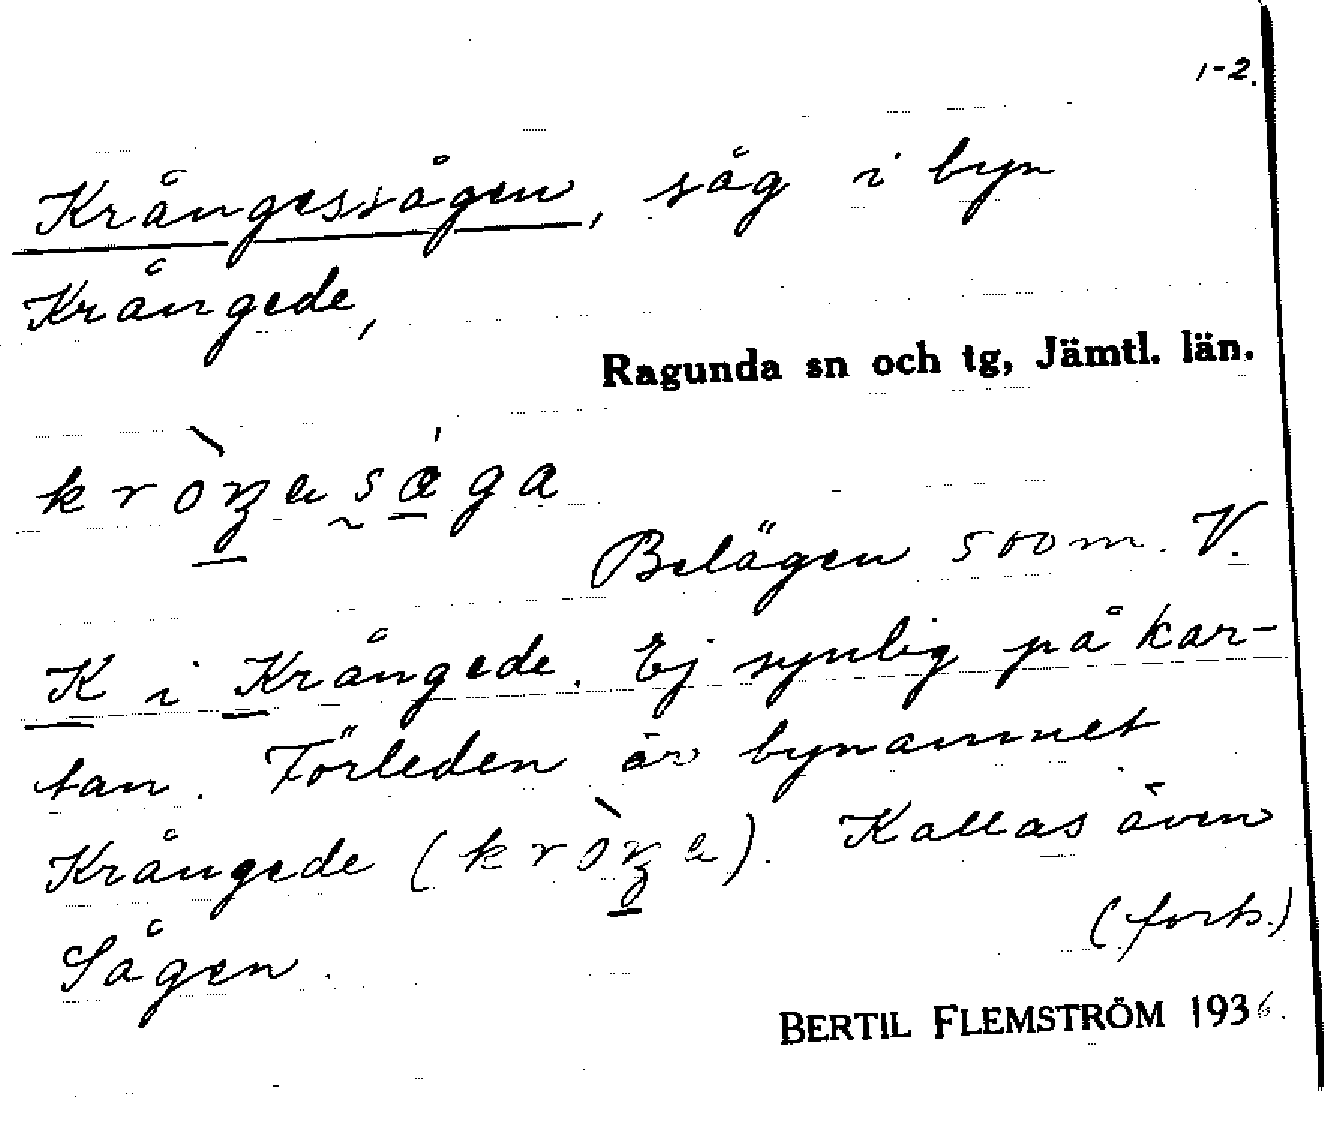 1-2.
Krångessågen, såg i byn
Krångede,
Ragunda sn och tg, Jämtl. län.
kròŋasága
Belägen 500 m. V.
K i Krångede. Ej synlig på kar-
tan. Förleden är bynamnet
Krångede (kròŋa). Kallas även
Sågen.
(forts.)
BERTIL FLEMSTRÖM 1936.